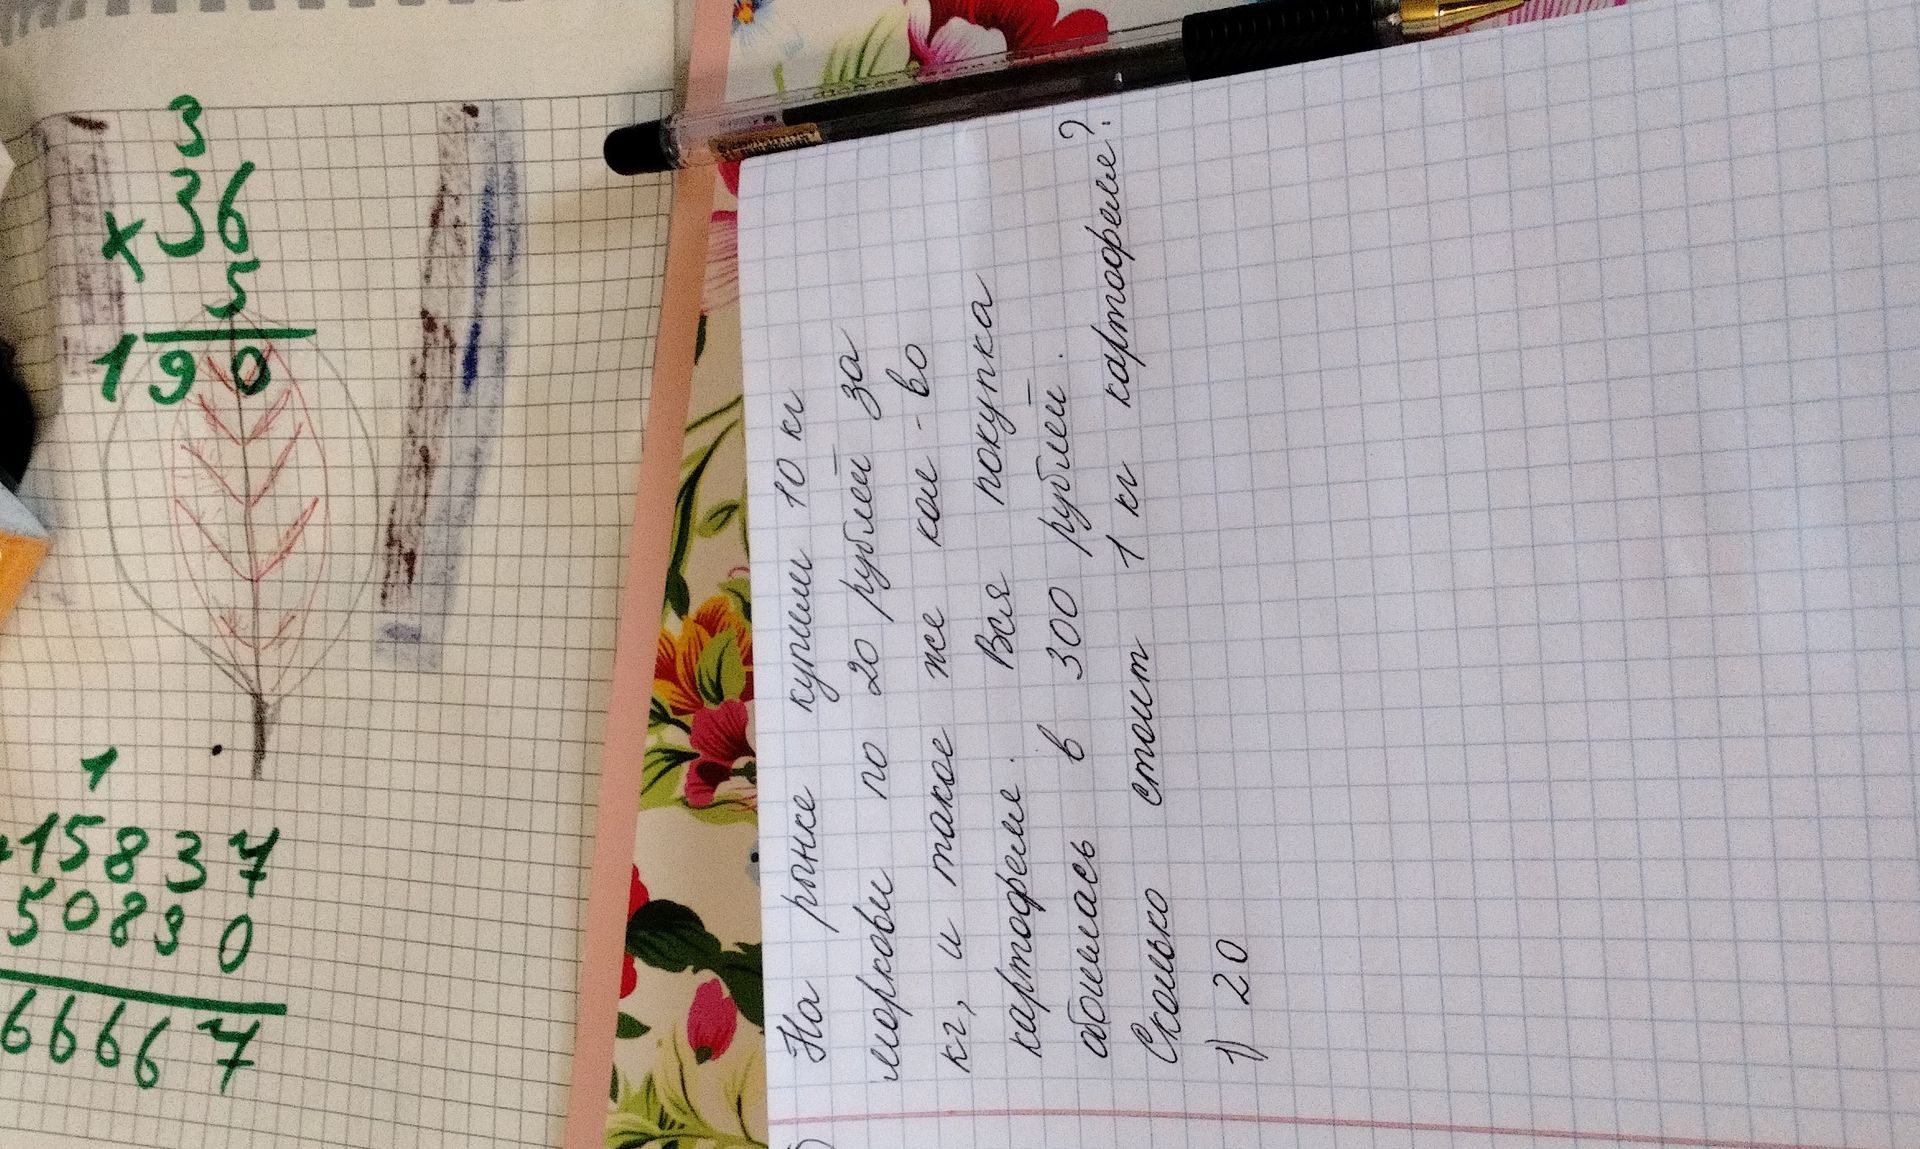 3
×36
5
190
1
+15837
50830
66667
На рынке купили 10 кг
моркови по 20 рублей за
кг, и такое же кол-во
картофеля. Вся покупка
обошлась в 300 рублей.
Сколько стоит 1 кг картофеля?
1) 20